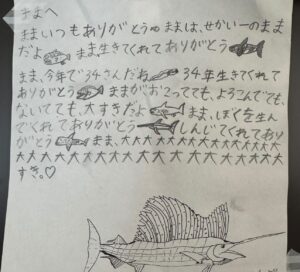 ままへ
ままいつもありがとうままは、せかい一のまま
だよ まま、生きてくれてありがとう
まま、今年で34さんだね 34年生きてくれて
ありがとう ままがおこってても、よろこんでても、
ないてても、大すきだよ まま、ぼくを生ん
でくれてありがとう しんじてくれてあり
がとう まま、大大大大大大大大大大大
大大大大大大大大大大大大大大大大大
すき。♡